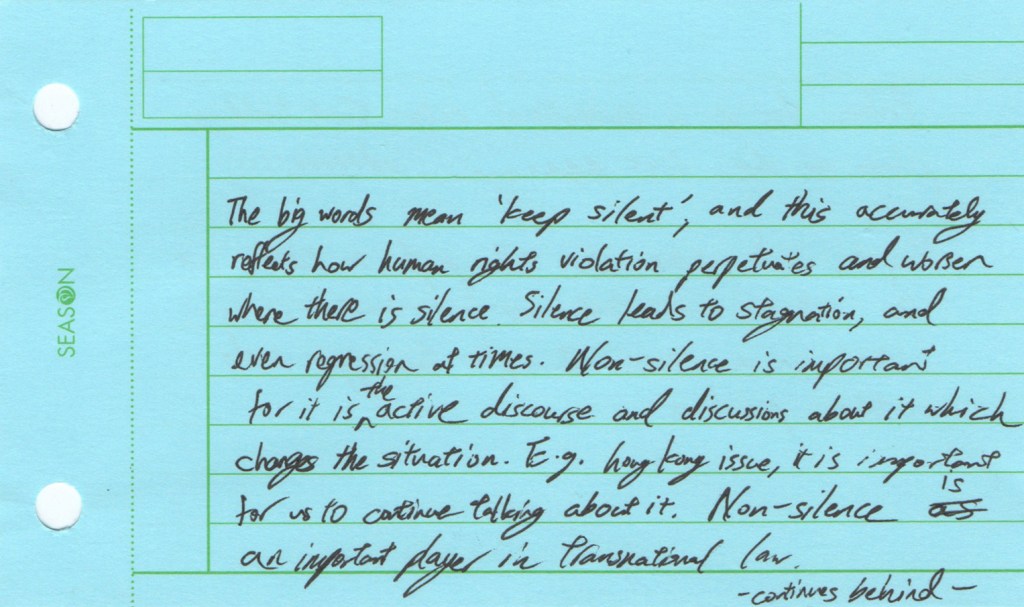 SEASON
The big words mean 'keep silent', and this accurately
reflects how human rights violation perpetuates and worsen
where there is silence. Silence leads to stagnation, and
even regression at times. Non-silence is important
for it is the active discourse and discussions about it which
changes the situation. E.g. hong kong issue, it is important
for us to continue talking about it. Non-silence is
an important player in transnational law.
-continues behind-